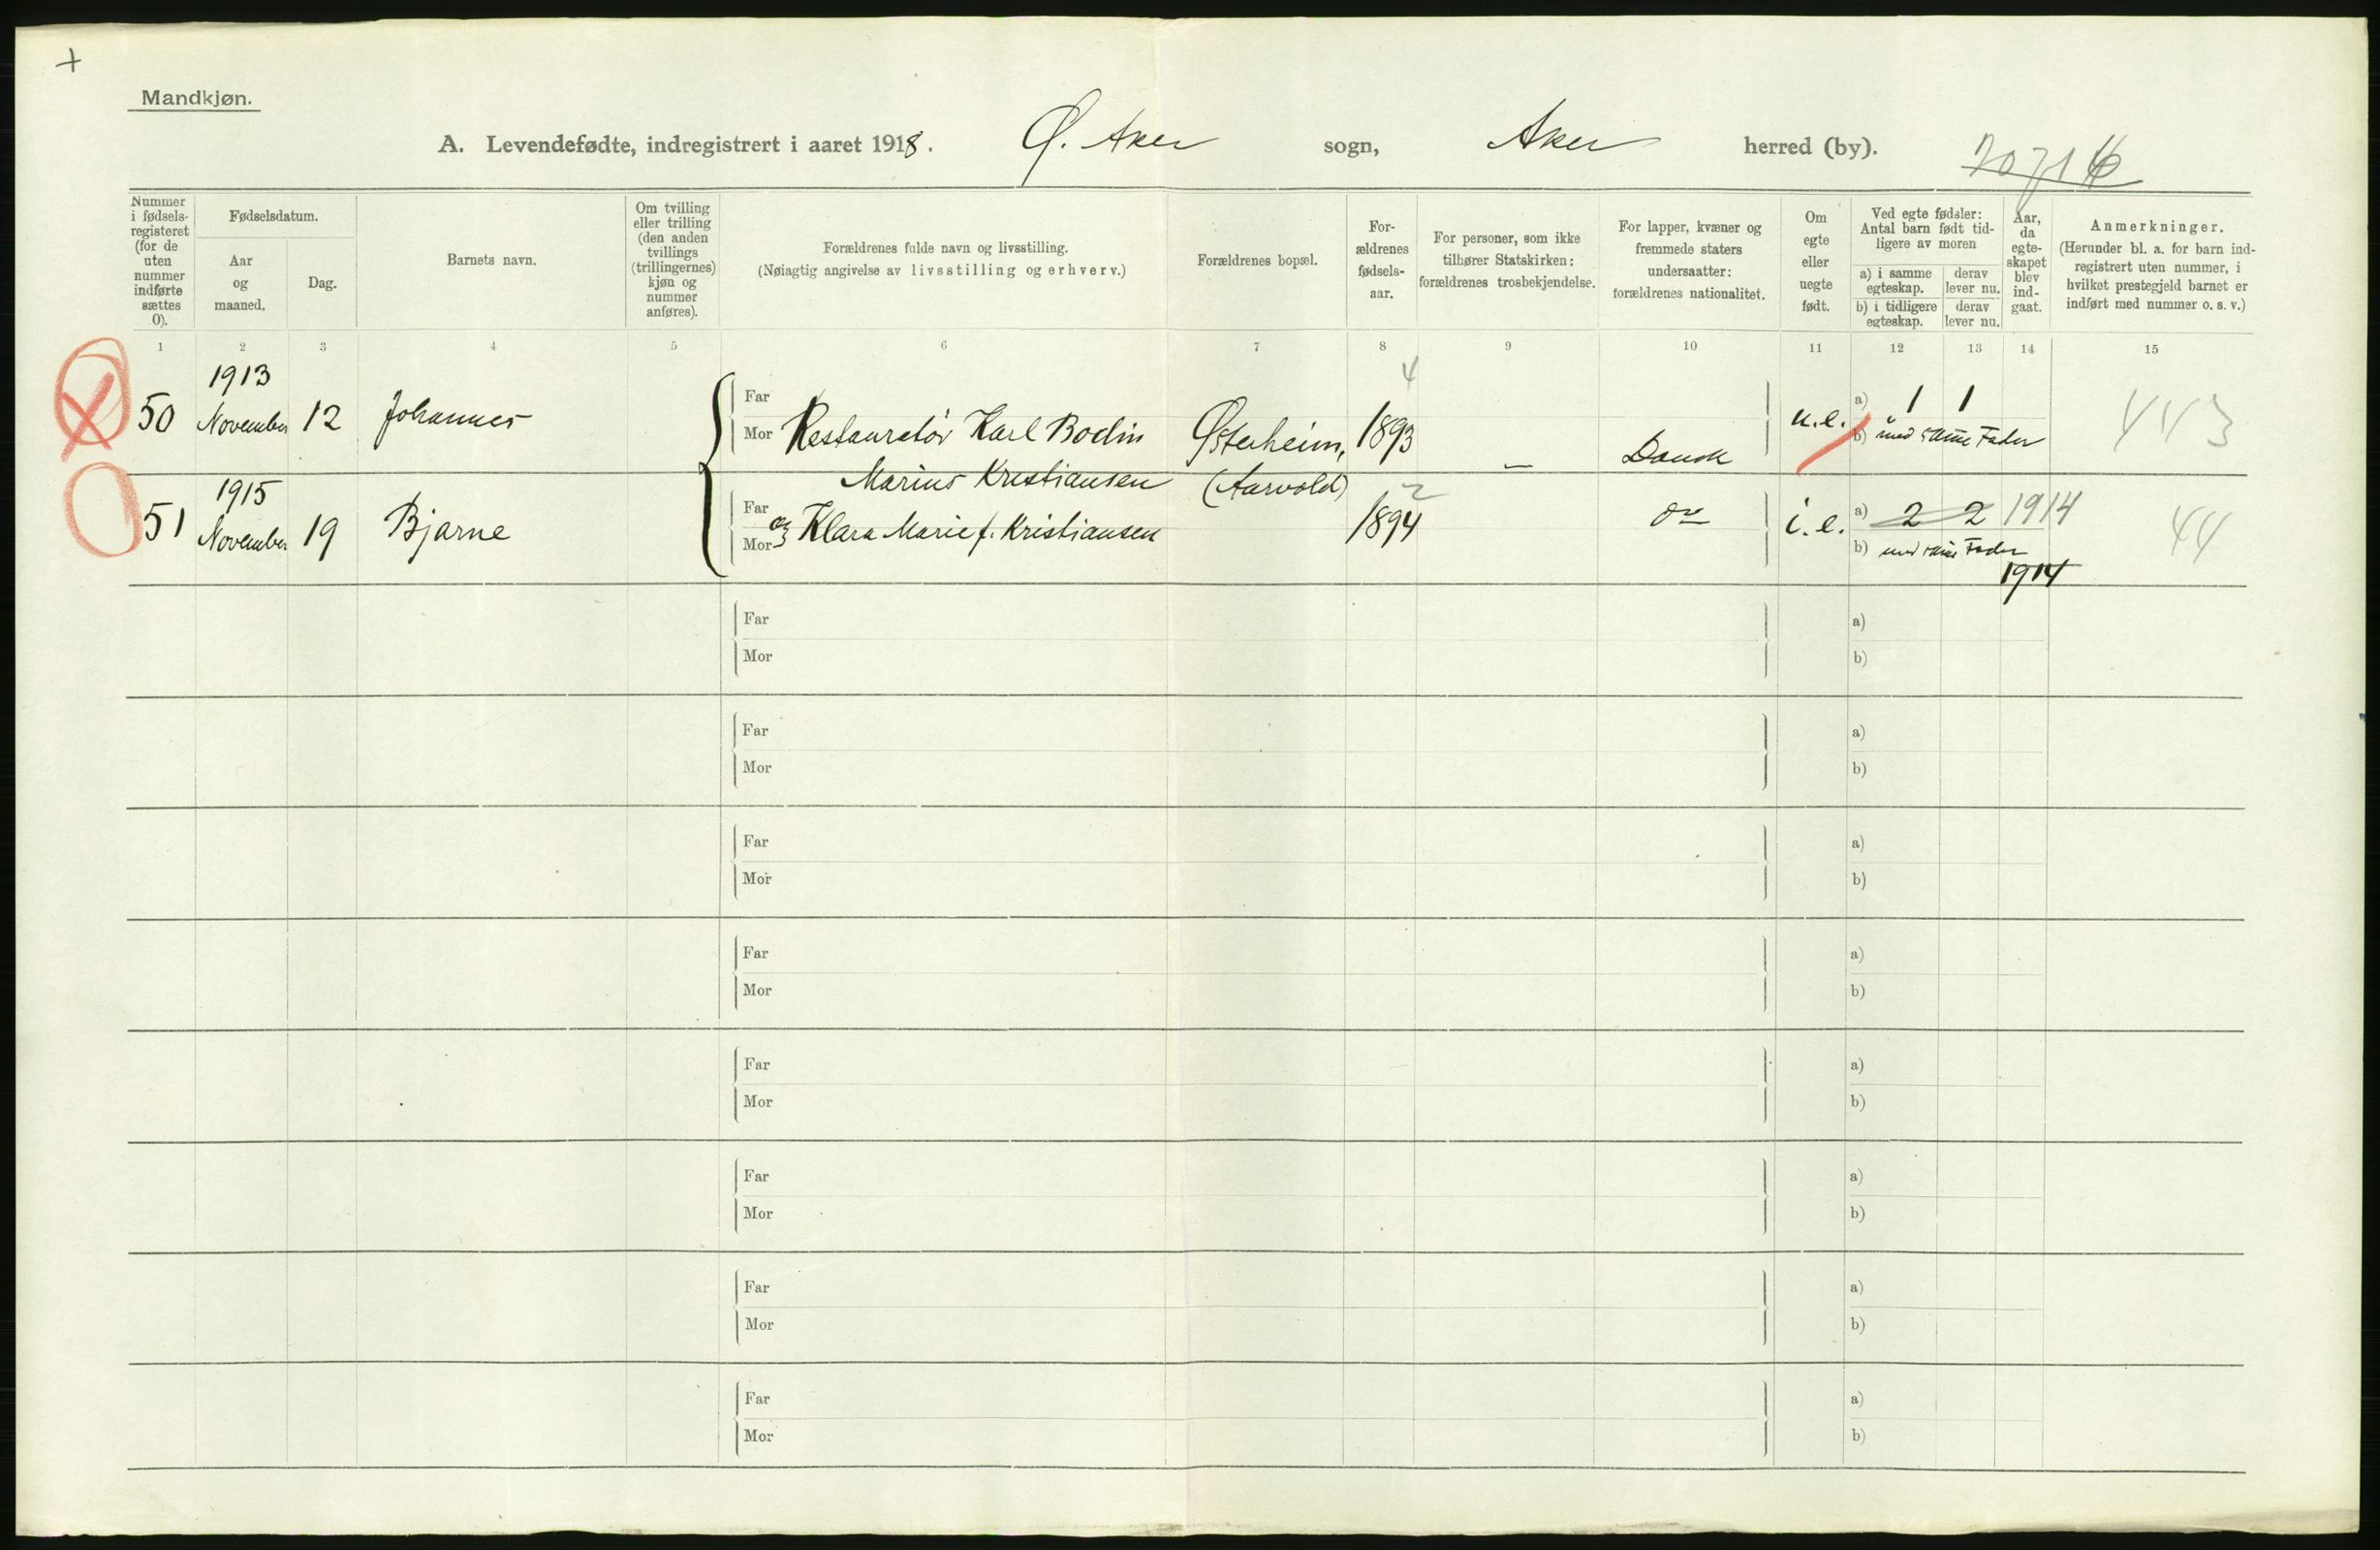 Mandkjøn.
A. Levendefødte, indregistrert i aaret 1918. Ø. Aker sogn, Aker herred (by).
Nummer i fødsels- registeret (for de uten nummer indførte sættes 0).
Fødselsdatum.
Aar og maaned.
Dag.
Barnets navn.
Om tvilling eller trilling (den anden tvillings (trillingernes) kjøn og nummer anføres).
Forældrenes fulde navn og livsstilling.
(Nøiagtig angivelse av livsstilling og erhverv.)
Forældrenes bopæl.
For- ældrenes fødsels- aar.
For personer, som ikke tilhører Statskirken: forældrenes trosbekjendelse.
For lapper, kvæner og fremmede staters undersaatter: forældrenes nationalitet.
Om egte eller uegte født.
Ved egte fødsler: Antal barn født tid- ligere av moren
a) i samme egteskap.
derav lever nu.
b) i tidligere egteskap.
derav lever nu.
Aar, da egte- skapet blev ind- gaat.
Anmerkninger.
(Herunder bl. a. for barn ind- registrert uten nummer, i hvilket prestegjeld barnet er indført med nummer o. s. v.)
1 2 3 4 5 6 7 8 9 10 11 12 13 14 15
1913
4
50 November 12 Johannes Far u.e. a) 1 1
Mor Restauratør Karl Bodin Østerheim, 1893 — Dansk b) med samme Fader 443
1915 Marius Kristiansen (Aarvold) 2
51 November 19 Bjarne Far og Klara Marie f. Kristiansen 1894 do i.e. a) 2 2 1914 44
Mor b) med samme Fader
1914
Far a)
Mor b)
Far a)
Mor b)
Far a)
Mor b)
Far a)
Mor b)
Far a)
Mor b)
Far a)
Mor b)
Far a)
Mor b)
Far a)
Mor b)